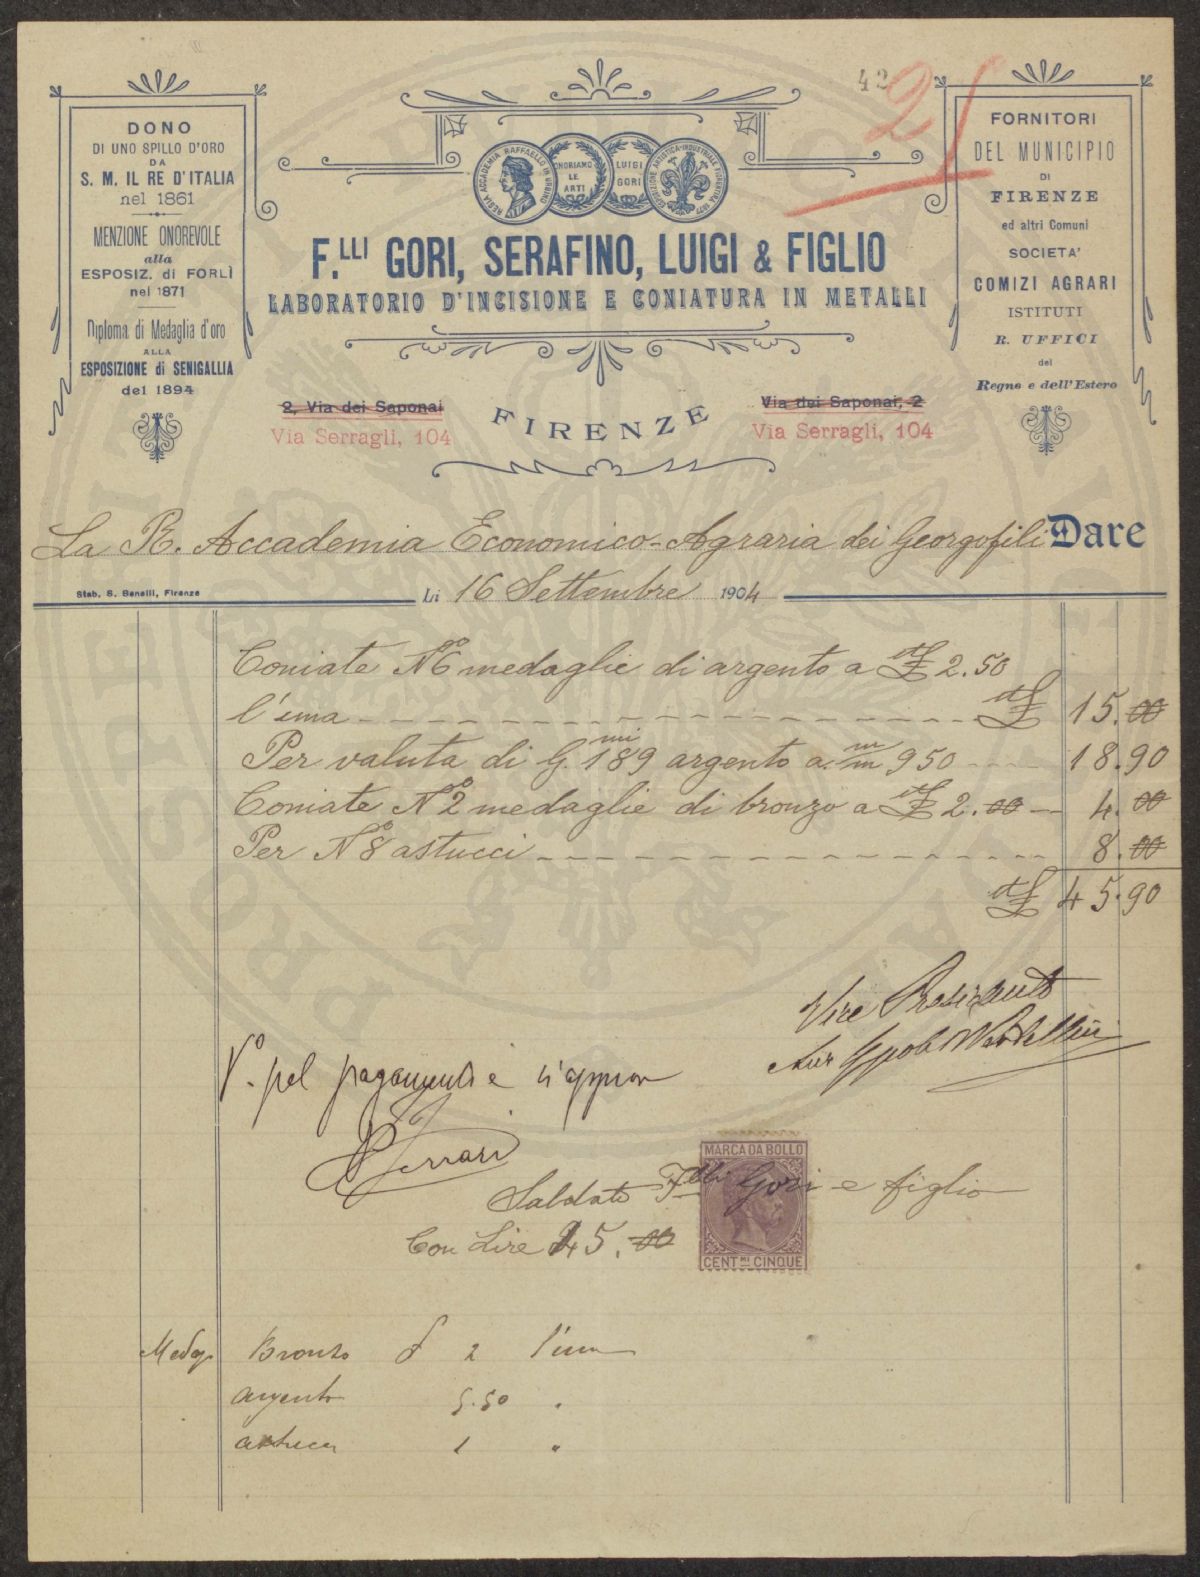 42
21
DONO
DI UNO SPILLO D'ORO
DA
S. M. IL RE D'ITALIA
nel 1861
MENZIONE ONOREVOLE
alla
ESPOSIZ. di FORLÌ
nel 1871
Diploma di Medaglia d'oro
ALLA
ESPOSIZIONE di SENIGALLIA
del 1894
REGIA ACCADEMIA RAFFAELLO IN URBINO
ONORIAMO
LE
ARTI
LUIGI
GORI
ESPOSIZIONE ARTISTICA-INDUSTRIALE FIORENTINA 1877
F.LLI GORI, SERAFINO, LUIGI & FIGLIO
LABORATORIO D'INCISIONE E CONIATURA IN METALLI
FORNITORI
DEL MUNICIPIO
DI
FIRENZE
ed altri Comuni
SOCIETA'
COMIZI AGRARI
ISTITUTI
R. UFFICI
del
Regno e dell'Estero
2, Via dei Saponai
Via Serragli, 104
FIRENZE
Via dei Saponai, 2
Via Serragli, 104
La R. Accademia Economico-Agraria dei Georgofili Dare
Stab. S. Benelli, Firenze
Li 16 Settembre 1904
Coniate No 6 medaglie di argento a £ 2.50
l'una £ 15.00
Per valuta di G.mi 189 argento a m/m 950 18.90
Coniate No 2 medaglie di bronzo a £ 2.00 4.00
Per No 8 astucci 8.00
£ 45.90
Vice Presidente
Vo. pel pagamento
Ferrari
MARCA DA BOLLO
Saldato Flli Gori e figlio
Con Lire 45.00
CENT.MI CINQUE
Medag Bronzo £ 2 l'una
argento 5.50 "
astucci 1 "